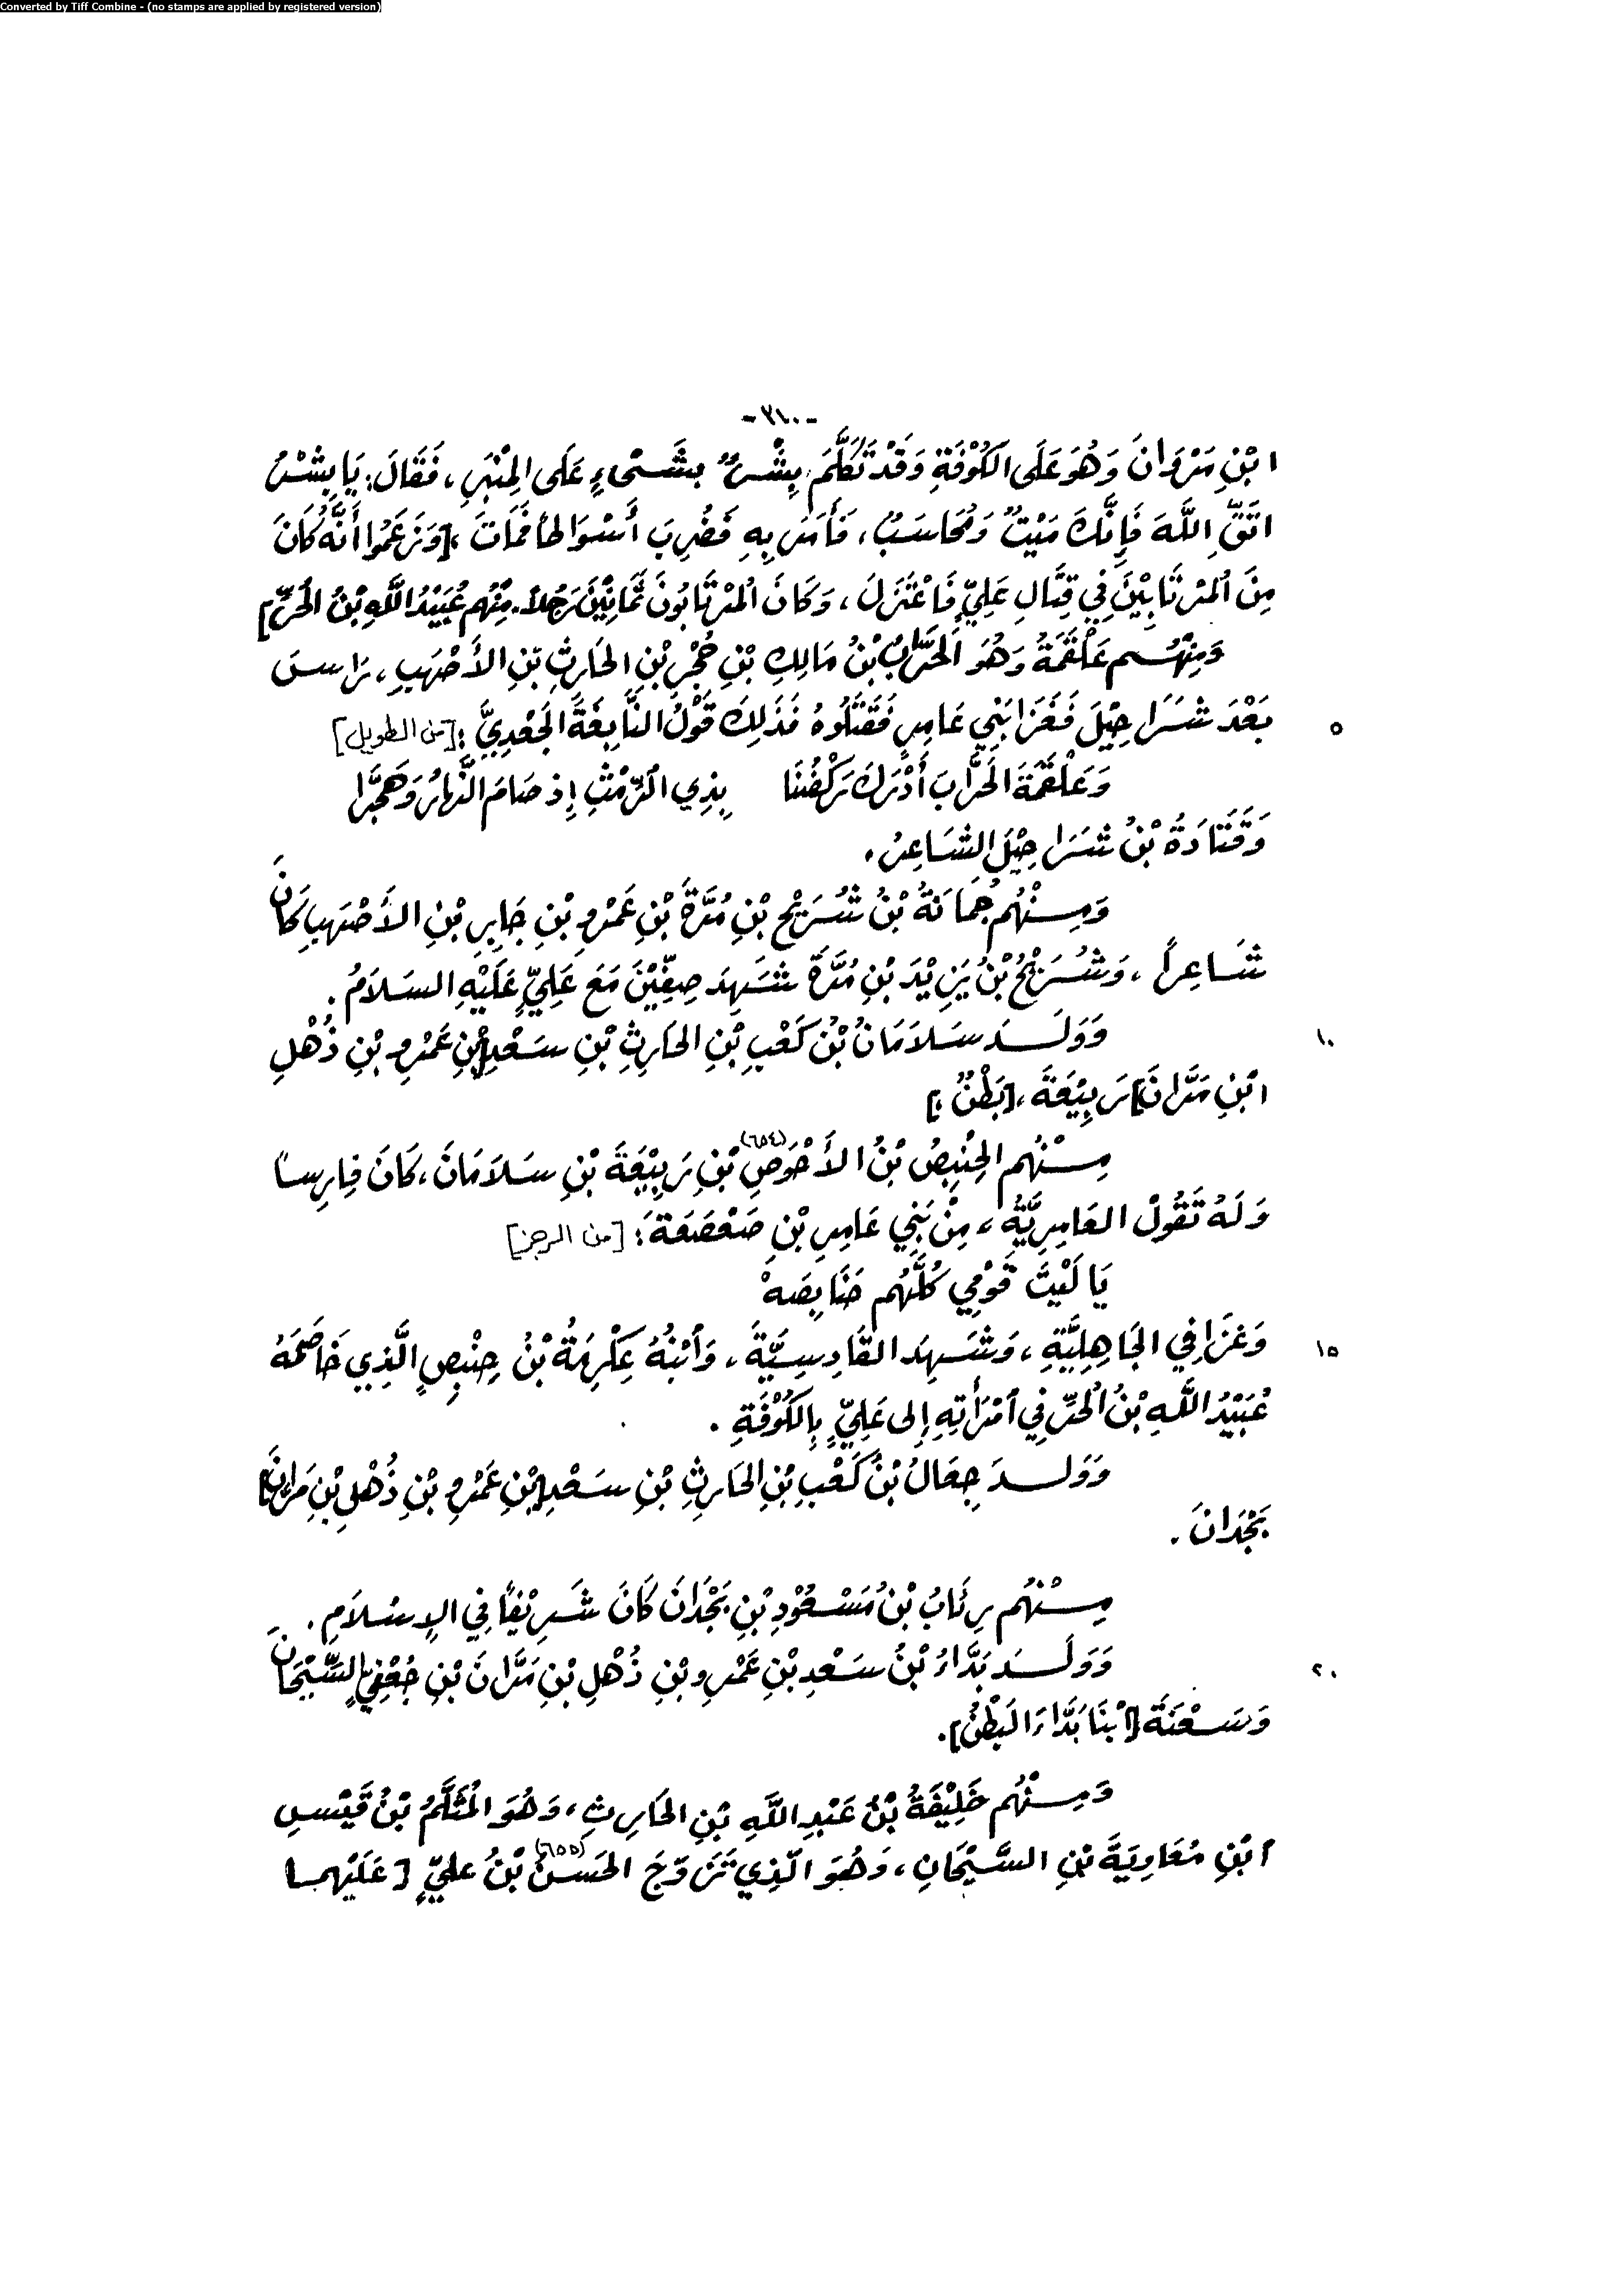 Converted by Tiff Combine - (no stamps are applied by registered version)
-٣١٠-
ابْنِ مَرْوَانَ وَهُوَ عَلَى الكُوْفَةِ وَقَدْ تَكَلَّمَ بِشْرٌ بِشَيْءٍ عَلَى المِنْبَرِ، فَقَالَ: يَا بِشْرُ
اتَّقِ اللَّهَ فَإِنَّكَ مَيِّتٌ وَمُحَاسَبٌ، فَأَمَرَ بِهِ فَضُرِبَ أَسْوَاطاً فَمَاتَ، [وَزَعَمُوا أَنَّهُ كَانَ
مِنَ المُرْتَابِيْنَ فِي قِتَالِ عَلِيٍّ فَاعْتَزَلَ، وَكَانَ المُرْتَابُونَ ثَمَانِيْنَ رَجُلاً. مِنْهُم عُبَيْدُ اللَّهِ بْنُ الحُرِّ]
وَمِنْهُم عَلْقَمَةُ وَهُوَ الحَرَّابُ بْنُ مَالِكِ بْنِ حُجْرِ بْنِ الحَارِثِ بْنِ الأَصْهَبِ، رَأَسَ
بَعْدَ شَرَاحِيْلَ فَغَزَا بَنِي عَامِرٍ فَقَتَلُوهُ فَذَلِكَ قَوْلُ النَّابِغَةَ الجَعْدِيَّ: [من الطويل] ٥
وَعَلْقَمَةَ الحَرَّابَ أَدْرَكَ رَكْضُنَا بِذِي الرِّمْثِ إِذ صَامَ النَّهَارُ وَهَجَّرَا
وَقَتَادَةُ بْنُ شَرَاحِيْلَ الشَاعِرُ.
وَمِنْهُم جُمَانَةُ بْنُ شُرَيْحِ بْنِ مُرَّةَ بْنِ عَمْرِو بْنِ جَابِرِ بْنِ الأَصْهَبِ كَانَ
شَاعِراً، وَشُرَيْحُ بْنُ يَزِيْدَ بْنِ مُرَّةَ شَهِدَ صِفِّيْنَ مَعَ عَلِيٍّ عَلَيْهِ السَلَامُ.
وَوَلَدَ سَلَامَانُ بْنُ كَعْبِ بْنِ الحَارِثِ بْنِ سَعْدِ [بْنِ عَمْرِو بْنِ ذُهْلِ ١٠
ابْنِ مَرَّانَ] رَبِيْعَةَ، [بَطْنٌ.]
مِنْهُم الحِنْبِصُ بْنُ الأَحْوَصِ (٦٥٤) بْنِ رَبِيْعَةَ بْنِ سَلَامَانَ، كَانَ فَارِساً
وَلَهُ تَقُولُ العَامِرِيَّةُ، مِنْ بَنِي عَامِرِ بْنِ صَعْصَعَةَ: [من الرجز]
يَا لَيْتَ قَوْمِي كُلَّهُم حَنَابِصَهْ
وَغَزَا فِي الجَاهِلِيَّةِ، وَشَهِدَ القَادِسِيَّةَ، وَابْنُهُ عِكْرِمَةُ بْنُ حِنْبِصٍ الَّذِي خَاصَمَهُ ١٥
عُبَيْدُ اللَّهِ بْنُ الحُرِّ فِي امْرَأَتِهِ إِلى عَلِيٍّ بِالكُوْفَةِ.
وَوَلدَ جِعَالُ بْنُ كَعْبِ بْنِ الحَارِثِ بْنِ سَعْدِ [بْنِ عَمْرِو بْنِ ذُهْلِ بْنِ مَرَّانَ]
بَجْدَانَ.
مِنْهُم رِئَابُ بْنُ مَسْعُوْدِ بْنِ بَجْدَانَ كَانَ شَرِيْفاً فِي الإِسْلَامِ.
وَوَلَدَ بَدَّاءُ بْنُ سَعْدِ بْنِ عَمْرِو بْنِ ذُهْلِ بْنِ مَرَّانَ بْنِ جُعْفِيٍّ السَّيْحَانَ ٢٠
وَسَعْنَةَ [ابْنَا بَدَّاءَ البَطْنُ].
وَمِنْهُم خَلِيْفَةُ بْنُ عَبْدِ اللَّهِ بْنِ الحَارِثِ، وَهُوَ المُثَلَّمُ بْنُ قَيْسِ
ابْنِ مُعَاوِيَةَ بْنِ السَّيْحَانِ، وَهُوَ الَّذِي تَزَوَّجَ الحَسَنُ (٦٥٥) بْنُ عليٍّ [عَلَيْهما